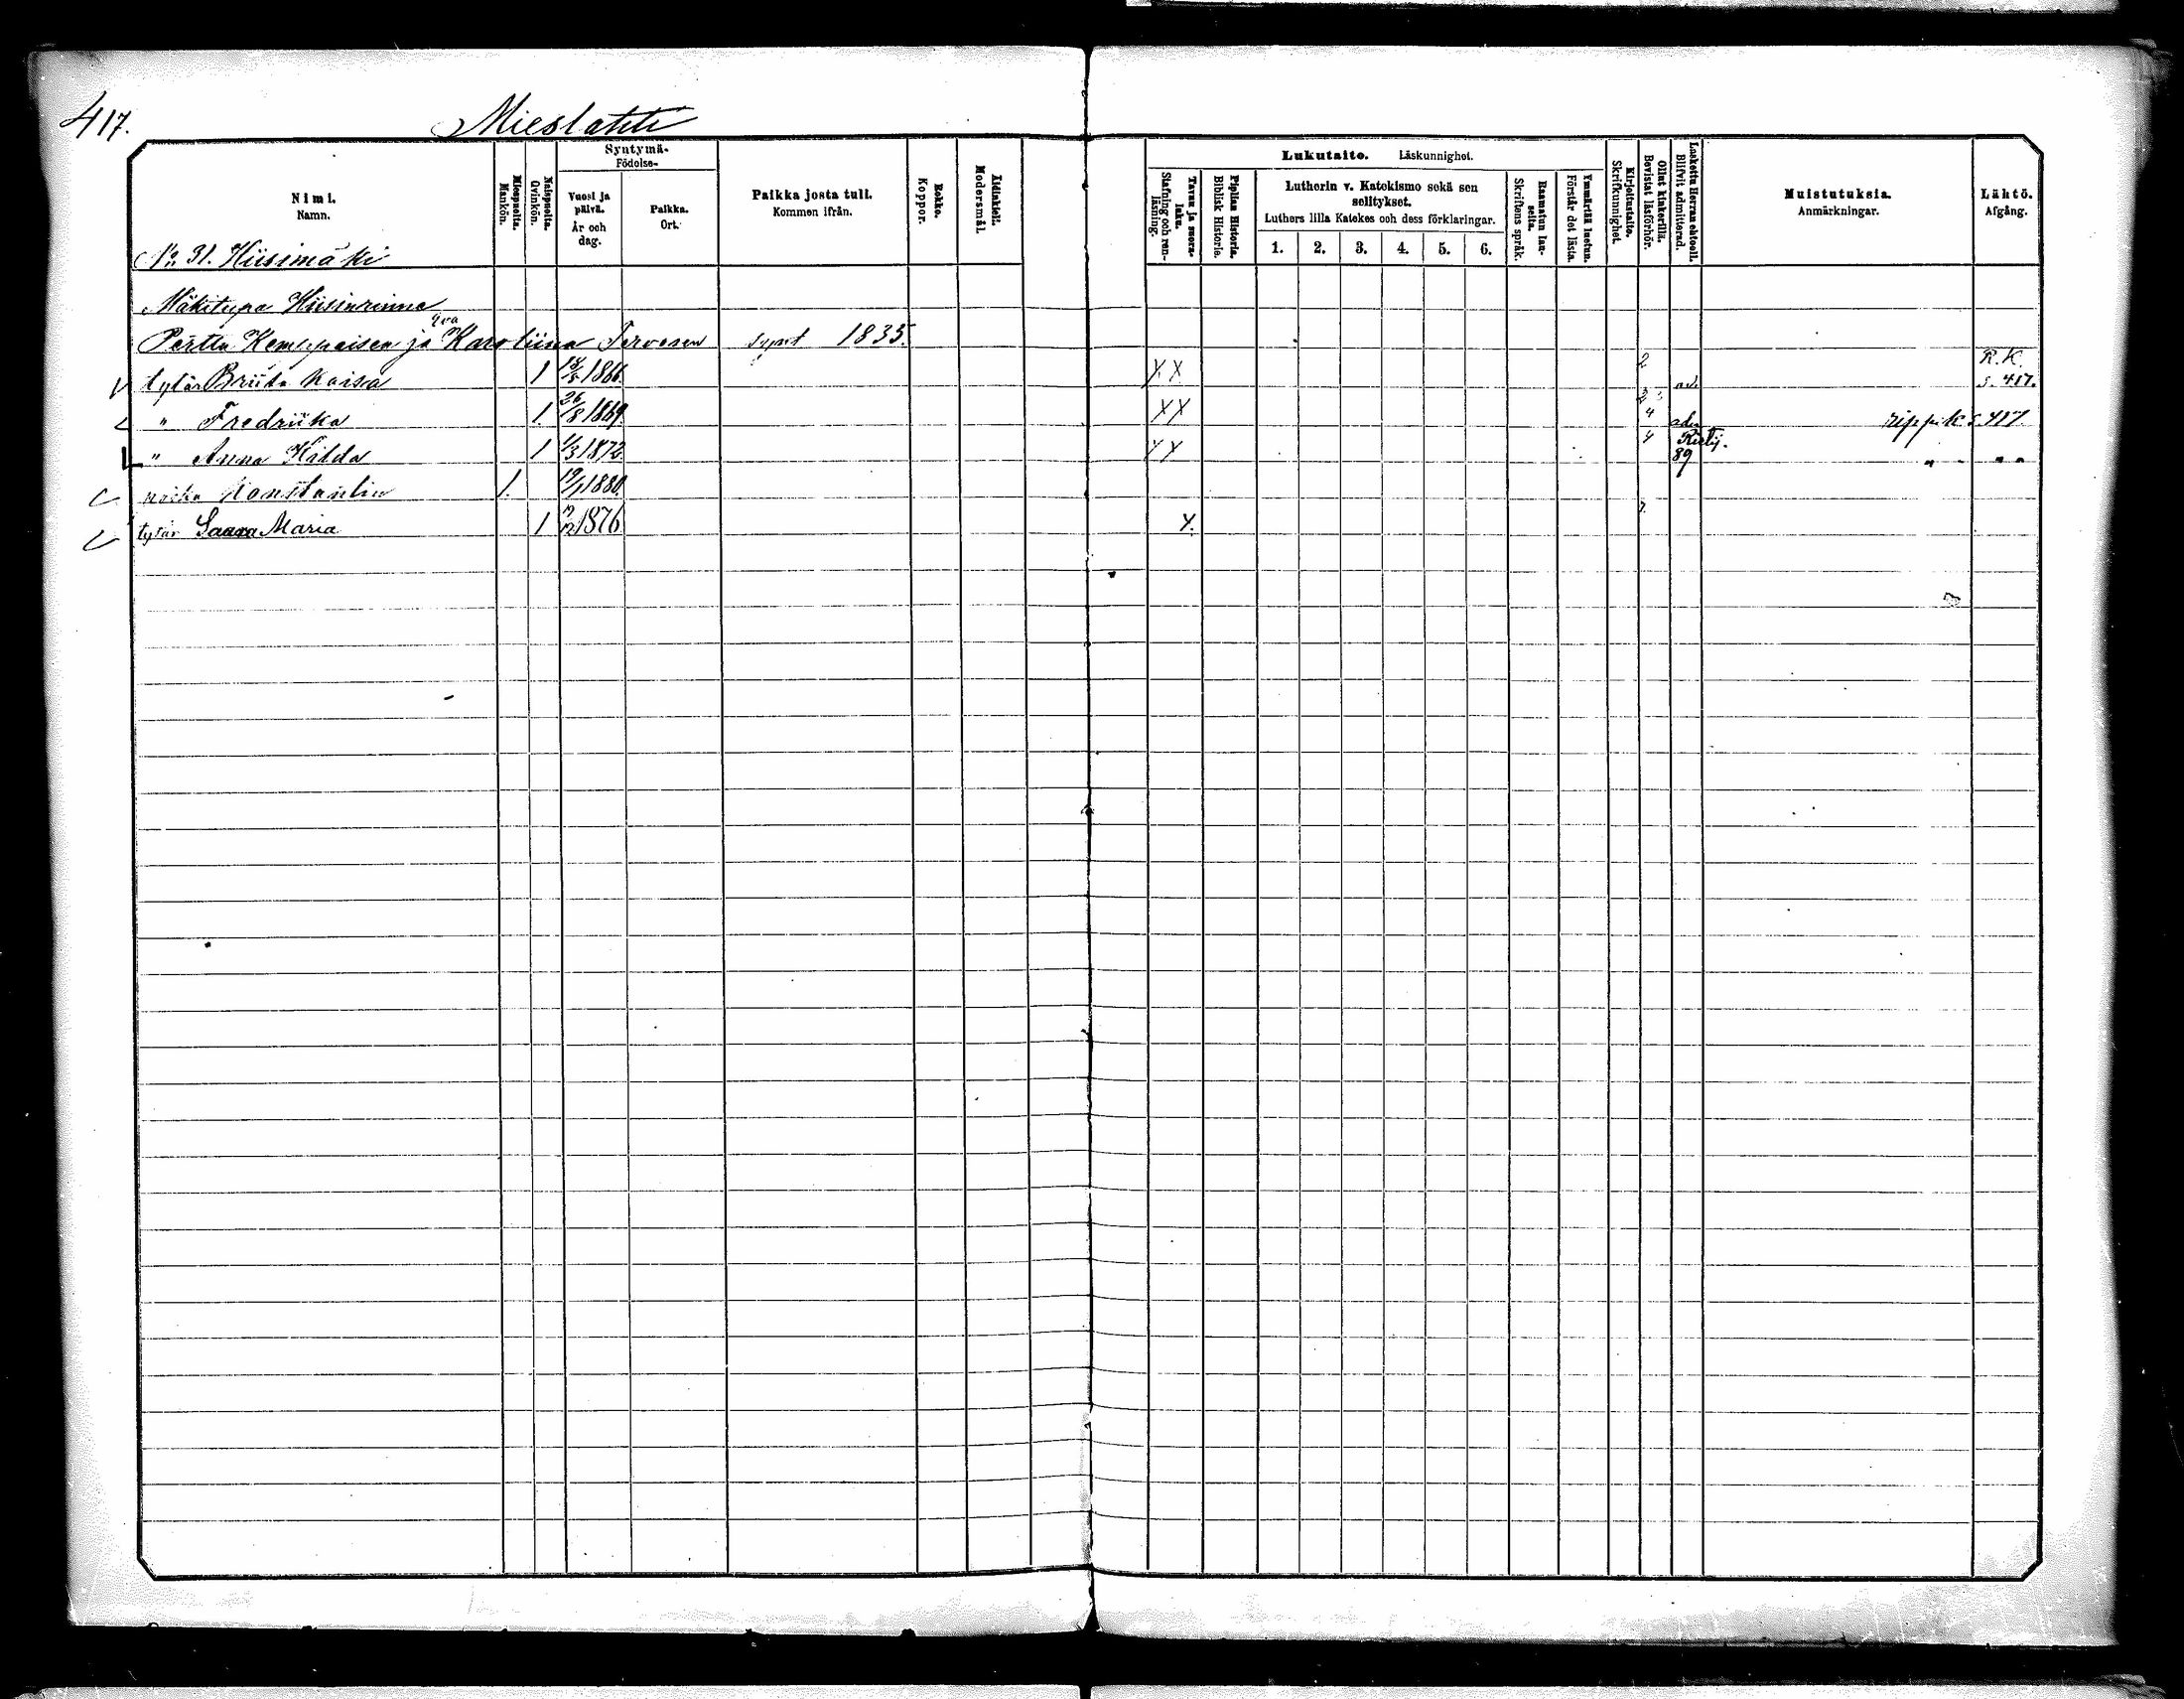 417.
Mieslahti
Nimi.
Namn.
Miespuolia.
Mankön.
Naispuolia.
Qvinkön.
Syntymä-
Födelse-
Vuosi ja
päivä.
År och
dag.
Paikka.
Ort.
Paikka josta tuli.
Kommen ifrån.
Rokko.
Koppor.
Äidinkieli.
Modersmål.
Lukutaito. Läskunnighet.
Tavan ja suora-
luku.
Stafning och ren-
läsning.
Piplian Historia.
Biblisk Historie.
Lutherin v. Katekismo sekä sen
selitykset.
Luthers lilla Katekes och dess förklaringar.
1. 2. 3. 4. 5. 6.
Raamatun lau-
seita.
Skriftens språk.
Ymmärtää luetun.
Förstår det lästa.
Kirjoitustaito.
Skrifkunnighet.
Ollut kinkerillä.
Bevistat läsförhör.
Laskettu Herran ehtooll.
Blifvit admitterad.
Muistutuksia.
Anmärkningar.
Lähtö.
Afgång.
No 31. Hiisimäki
Mäkitupa Hiisinrinne
Pertta Kemppaisen ja Karoliina Tervosen synt 1835.
tytär Briita Kaisa 1 1866. XX 2 ad. R.K. s. 417.
" Fredriika 1 26/8 1869. XX 4 adm rippik s. 417.
" Anna Hilda 1 1/3 1872. XX 4 89 " " " "
poika Konstantin 1. 19/1 1880.
tytär Saara Maria 1 1876 X.